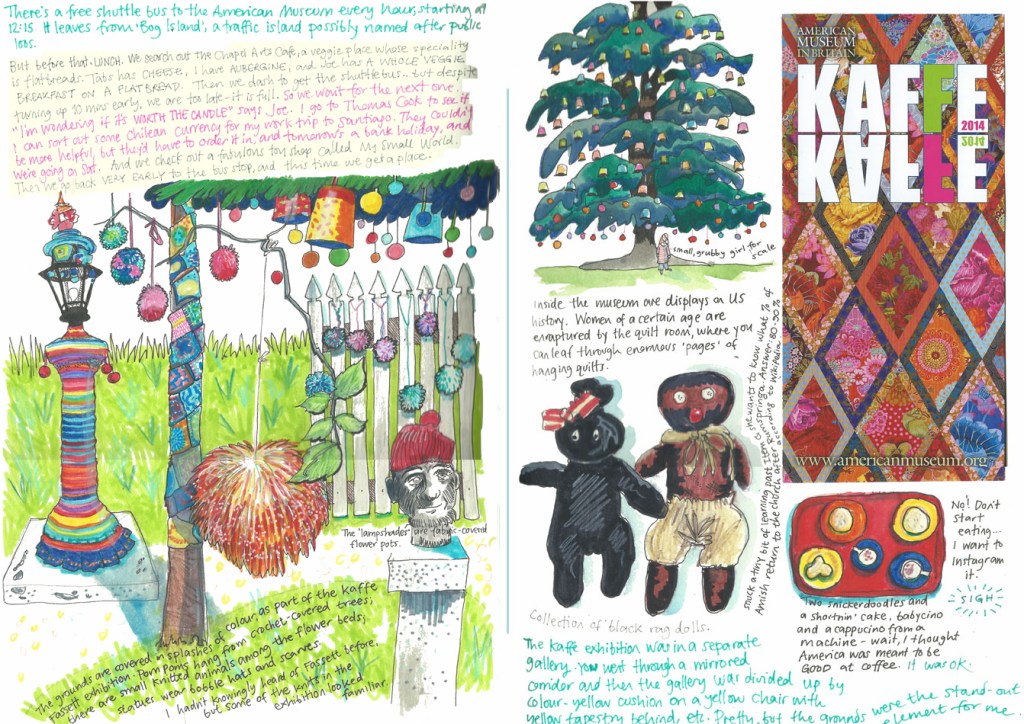 There's a free shuttle bus to the American Museum every hour, starting at
12:15. It leaves from 'Bog Island', a traffic island possibly named after public
loos.
But before that - LUNCH. We search out the Chapel Arts Cafe, a veggie place whose speciality
is flatbreads. Tabs has CHEESE, I have AUBERGINE, and Joe has A WHOLE VEGGIE
BREAKFAST ON A FLATBREAD. Then we dash to get the shuttlebus.. but despite
turning up 10 mins early, we are too late - it is full. So we wait for the next one.
"I'm wondering if it's WORTH THE CANDLE" says Joe. I go to Thomas Cook to see if
I can sort out some Chilean currency for my work trip to Santiago. They couldn't
be more helpful, but they'd have to order it in, and tomorrow's a bank holiday, and
we're going on Sat. And we check out a fabulous toy shop called My Small World.
Then we go back VERY EARLY to the bus stop, and this time we get a place.
The 'lampshades' are fabric-covered
flower pots.
The grounds are covered in splashes of colour, as part of the Kaffe
Fassett exhibition. Pom Poms hang from crochet-covered trees;
there are small knitted animals among the flower beds;
statues wear bobble hats and scarves.
I hadn't knowingly heard of Fassett before.
but some of the knits in the
exhibition looked
familiar.
small, grubby girl, for
scale
Inside the museum are displays on US
history. Women of a certain age are
enraptured by the quilt room, where you
can leaf through enormous 'pages' of
hanging quilts.
snuck a tiny bit of learning past Item Offspring - she wants to know what % of
Amish return to the church after Rumspringa. Answer: 80-90%
according to Wikipedia.
Collection of black rag dolls.
The Kaffe exhibition was in a separate
gallery. You went through a mirrored
corridor and then the gallery was divided up by
colour - yellow cushion on a yellow chair with
yellow tapestry behind, etc. Pretty, but the grounds were the stand-out
element for me.
AMERICAN
MUSEUM
IN BRITAIN
KAFFE
2014
www.americanmuseum.org
No! Don't
start
eating...
I want to
Instagram
it.
SIGH
Two snickerdoodles and
a shortnin' cake, babycino
and a cappucino from a
machine - wait, I thought
America was meant to be
GOOD at coffee. It was ok.